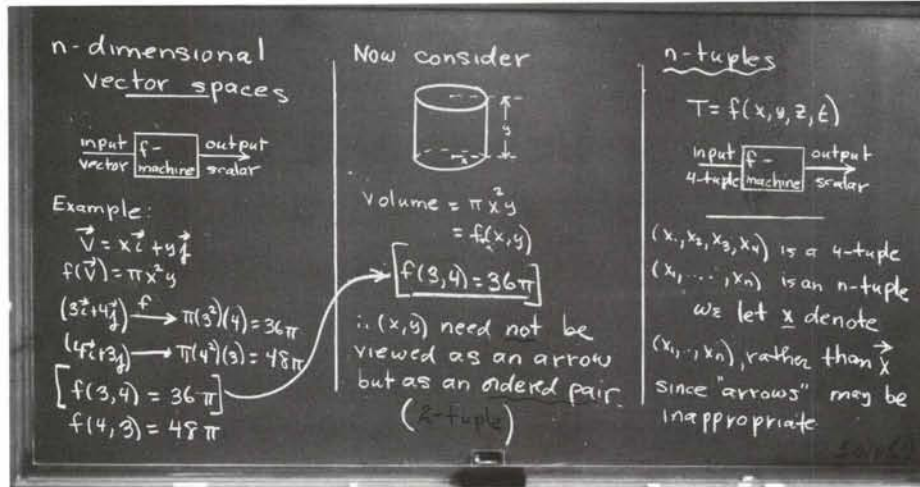 n-dimensional
vector spaces
input
vector
f-
machine
output
scalar
Example:
V⃗ = xi⃗ + yj⃗
f(V⃗) = πx²y
(3i⃗+4j⃗) f→ π(3²)(4) = 36π
(4i⃗+3j⃗) → π(4²)(3) = 48π
[f(3,4) = 36π]
f(4,3) = 48π
Now consider
y
x
Volume = πx²y
= f(x,y)
[f(3,4) = 36π]
∴ (x,y) need not be
viewed as an arrow
but as an ordered pair.
(2-tuple)
n-tuples
T = f(x,y,z,t)
input
4-tuple
f-
machine
output
scalar
(x₁,x₂,x₃,x₄) is a 4-tuple
(x₁,....,xₙ) is an n-tuple
we let x denote
(x₁,..,xₙ), rather than x⃗
since "arrows" may be
inappropriate